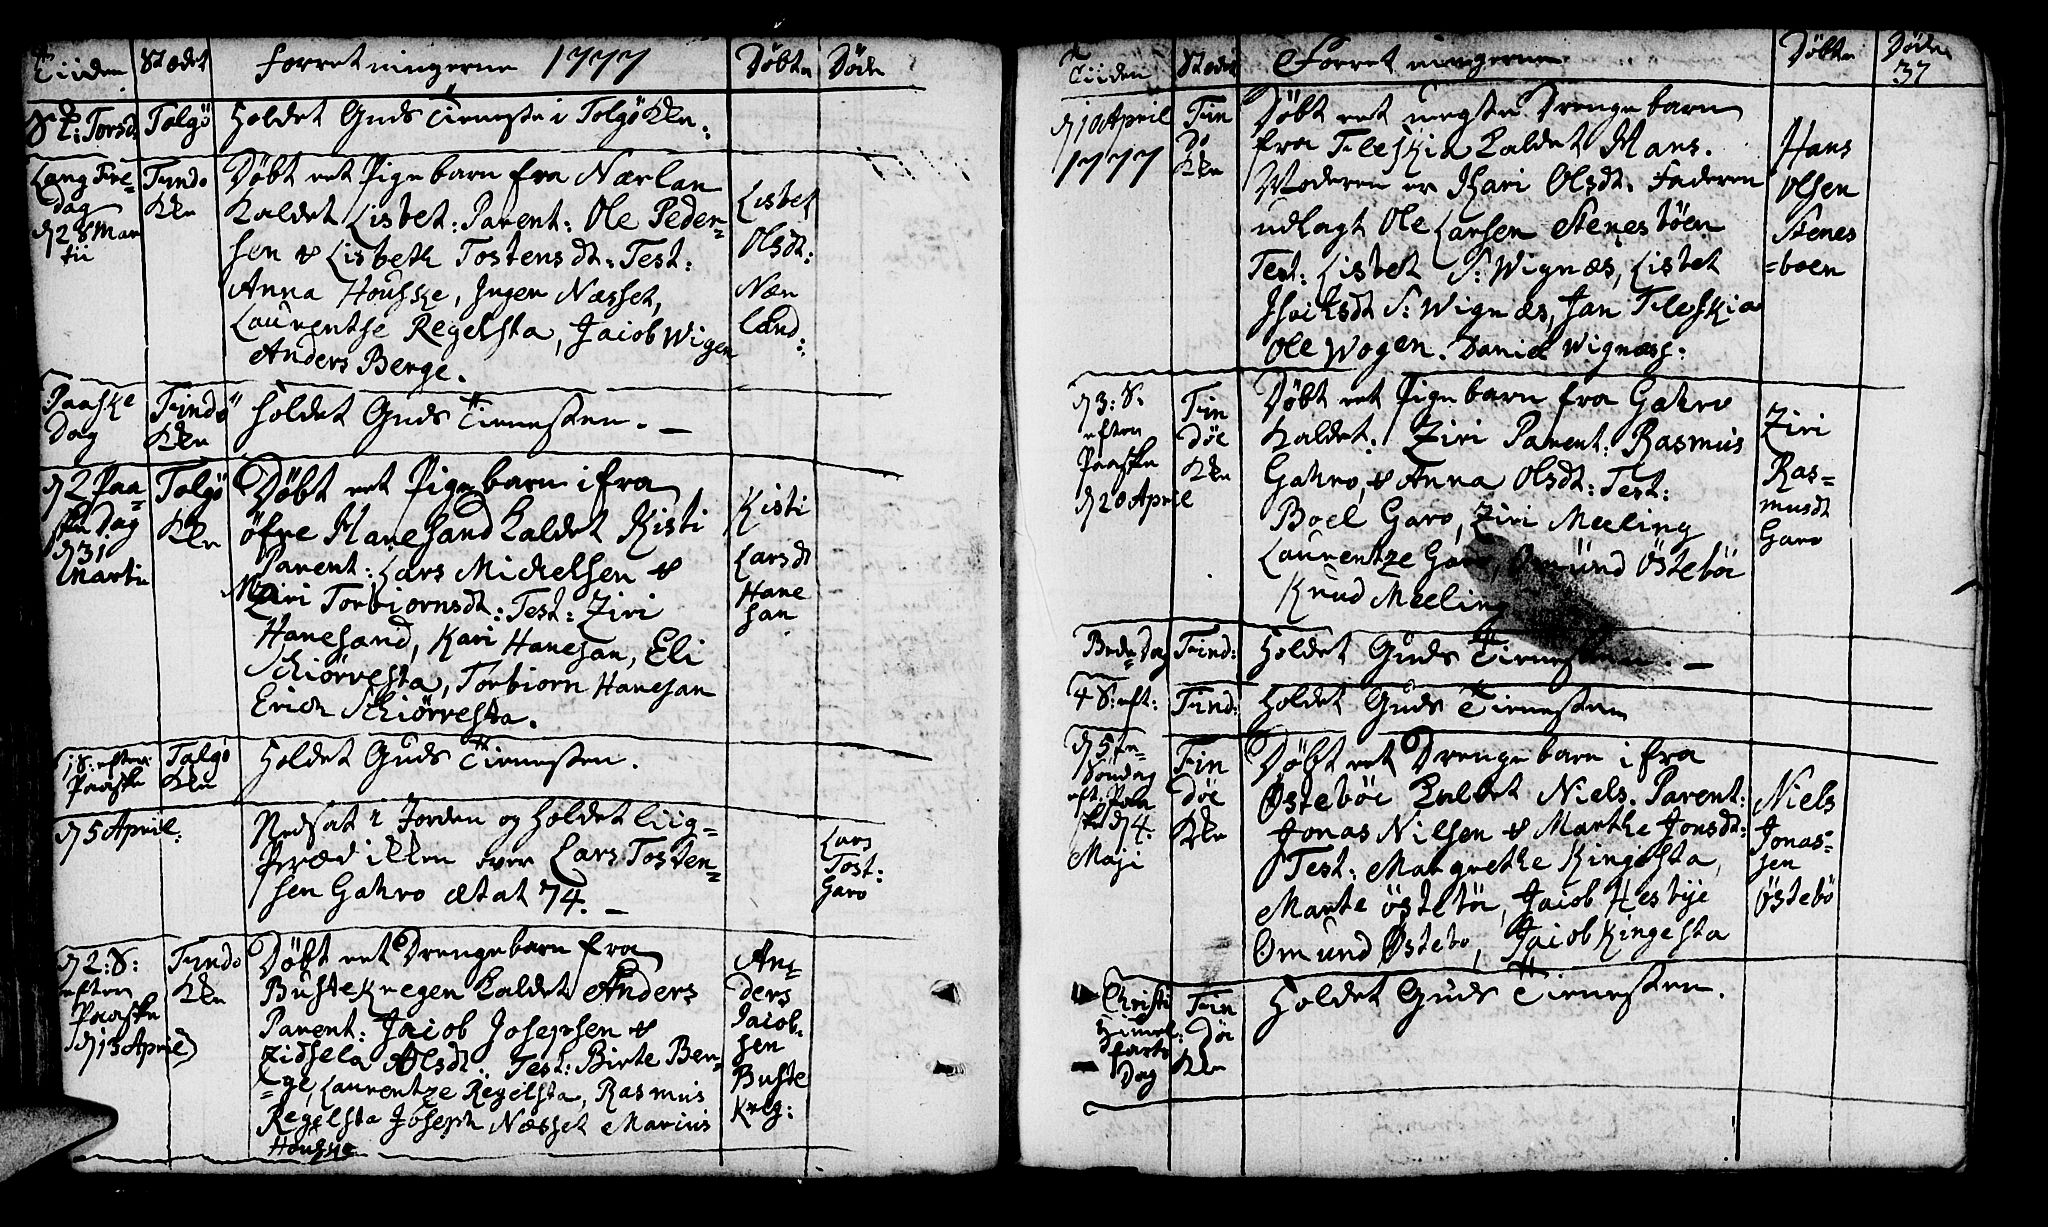 Tiiden Stædet Forretningerne 1777 Døbte Døde
Sk: Torsd: Talgø Holdet Guds Tieneste i Talgø Kke:
Lang Fre-
dag
d 28 Mar
tii
Findø
Kke
Døbt et Pigebarn fra Nærlan
kaldet Lisbet: Parent: Ole Peder-
sen & Lisbeth Tostensdt: Test:
Anna Houske, Inger Næsset,
Laurentse Regelsta, Jacob Wigen
Anders Berge.
Lisbet
Olsdt:
Nær
land:
Paaske
Dag
Findö
Kke
Holdet Guds Tienesten. —
d 2 Paa-
ske Dag
d 31
Martii
Talgø
Kke
Døbt et Pigebarn ifra
öfre Hanesand kaldet Kisti
Parent: Lars Mickelsen &
Ziri Torbiornsdt: Test: Ziri
Hanesand, Kari Hanesan, Eli
Schiörvesta, Torbiorn Hanesan
Erich Schiörvesta.
Kisti
Larsdt
Hane
san
1 S: efter
Paaske
Talgö
Kke
Holdet Guds Tienesten.
d 5 April:
Nedsat i Jorden og holdet Liig-
Prædikken over Lars Tosten-
sen Gahro ætat 74. —
Lars
Tost:
Garo
d 2: S:
efter
Paaske
d 13 April
Findø
Kke
Døbt et Drengebarn fra
Bustekregen kaldet Anders
Parent: Jacob Josephsen &
Zidsela Olsdt: Test: Birte Ber-
ge, Laurentze Regelsta, Rasmus
Regelsta Joseph Næsset Marius
Houske
An-
ders
Jacob-
sen
Buste
kreg:
Tiiden Stædet Forretningerne Døbte Døde
37
d 10 April
1777
Fin
dø
Kke
Døbt et uægte Drengebarn
fra Fleskia kaldet Hans.
Moderen er Kari Olsdt. Faderen
udlagt Ole Larsen Stenesböen
Test: Lisbet S: Wignæs, Lisbet
Isachsdt S: Wignæs, Jan Fleskia
Ole Wogen. Daniel Wignæss.
Hans
Olsen
Stenes
=boen
d 3: S.
efter
Paaske
d 20 April
Fin
döe
Kke
Døbt et Pigebarn fra Gahro
kaldet: Ziri Parent: Rasmus
Gahro, & Anna Olsdt: Test:
Boel Garo, Ziri Meeling
Laurentze Garo, Omünd Östeböe
Knud Meeling
Ziri
Ras=
musdt
Garo
Bede-Dag Find: Holdet Guds Tienesten. —
4 S: eft: Find: Holdet Guds Tienesten
d 5te
Søndag
eft: Paa
ske d 4.
Maji
Fin
döe
Kke
Døbt et Drengebarn ifra
Østebøe kaldet Niels. Parent:
Jonas Nilsen & Marthe Jonsdt:
Test: Margrethe Kingesta,
Marte Östeböe, Jacob Hesbye
Omund Østebo, Jacob Kingesta
Niels
Jonas-
sen
Östebö
Christi
Himel:
farts
Dag
Fin
döe
Kke
Holdet Guds Tienesten.